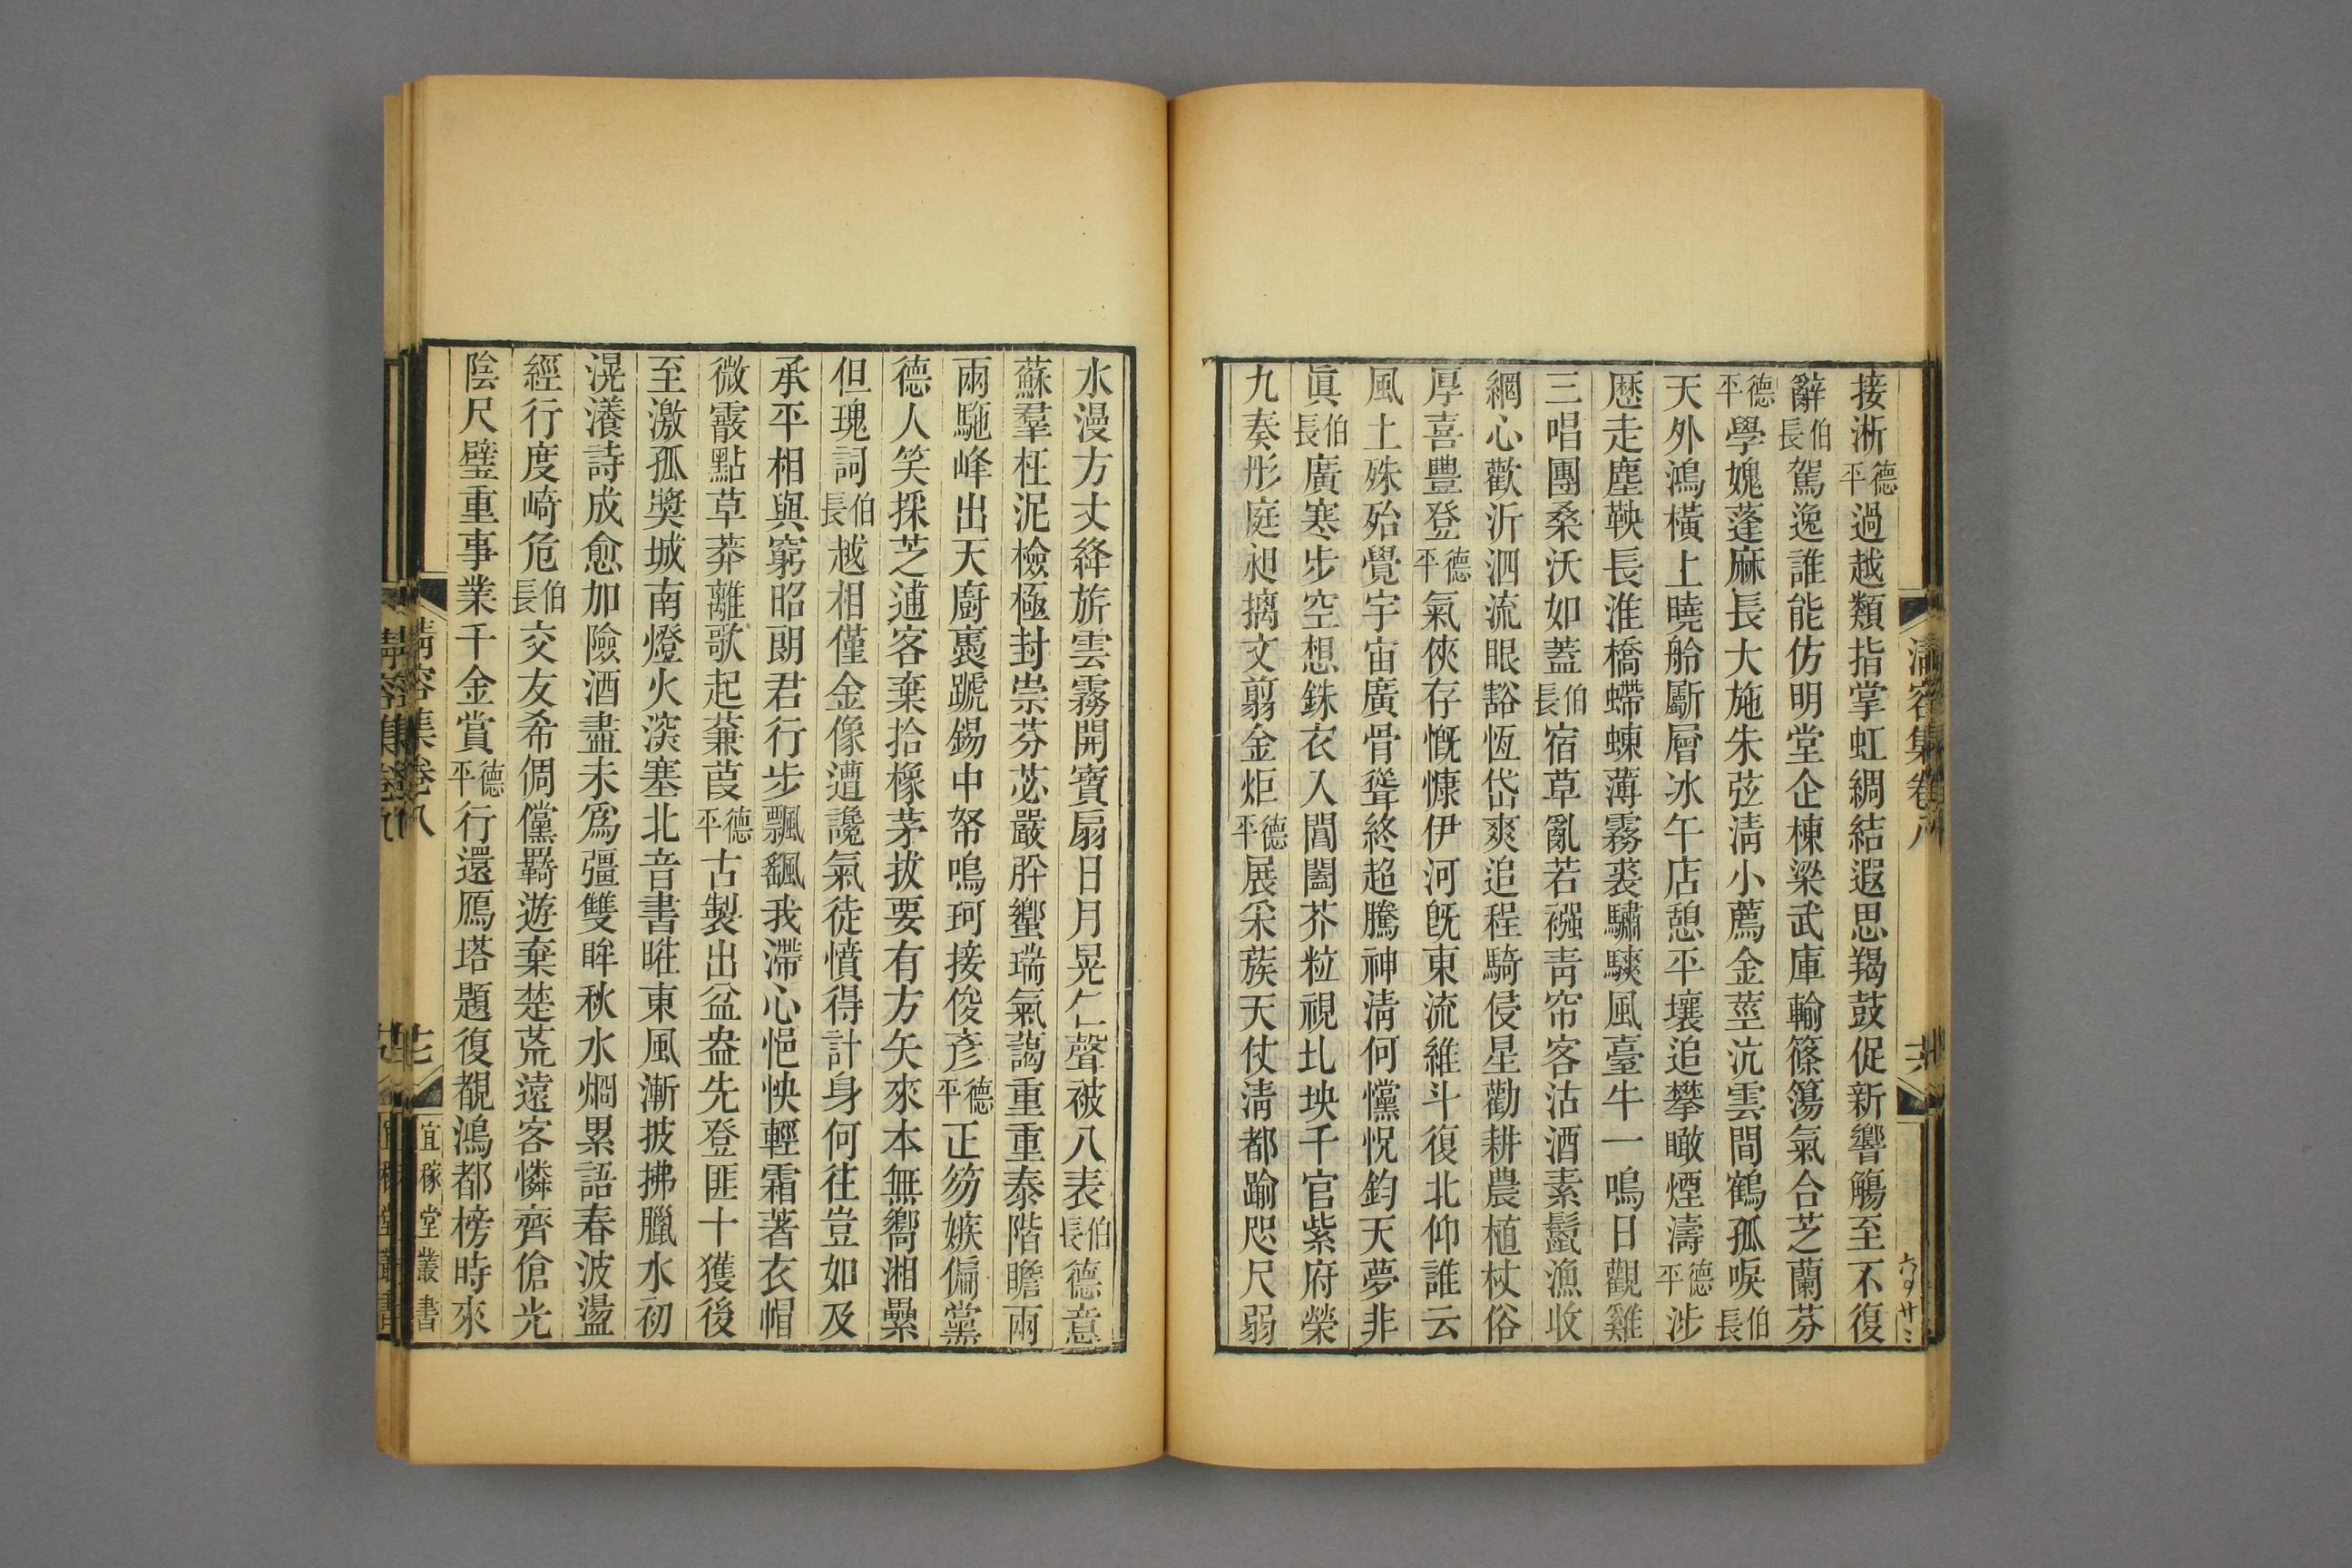 接淅德平過越類指掌虹綢結遐思羯鼓促新響觴至不復
辭伯長駕逸誰能仿明堂企棟梁武庫輸篠簜氣合芝蘭芬
德平學媿蓬麻長大施朱弦淸小薦金莖沆雲間鶴孤唳伯長
天外鴻橫上曉舲斸層冰午店憩平壤追攀瞰煙濤德平涉
歷走塵鞅長淮橋螮蝀薄霧裘驌驦風臺牛一鳴日觀雞
三唱團桑沃如蓋伯長宿草亂若襁靑帘客沽酒素鬚漁收
網心歡沂泗流眼豁恆岱爽追程騎侵星勸耕農植杖俗
厚喜豐登德平氣俠存慨慷伊河旣東流維斗復北仰誰云
風土殊殆覺宇宙廣骨聳終超騰神淸何戃怳鈞天夢非
眞伯長廣寒步空想銖衣入閶闔芥粒視圠坱千官紫府榮
九奏彤庭昶摛文翦金炬德平展采蔟天仗淸都踰咫尺弱
淸容集卷八
六
水漫方丈絳旂雲霧開寶扇日月晃仁聲被八表伯長德意
蘇羣枉泥檢極封崇芬苾嚴肸蠁瑞氣藹重重泰階瞻兩
兩駞峰出天廚裹蹏錫中帑鳴珂接俊彥德平正笏嫉偏黨
德人笑採芝逋客棄拾橡茅拔要有方矢來本無嚮湘纍
但瑰詞伯長越相僅金像遭讒氣徒憤得計身何往豈如及
承平相與窮昭朗君行步飄颻我滯心悒怏輕霜著衣帽
微霰點草莽離歌起蒹葭德平古製出盆盎先登匪十獲後
至激孤奬城南燈火深塞北音書曠東風漸披拂臘水初
滉瀁詩成愈加險酒盡未爲彊雙眸秋水烱累語春波盪
經行度崎危伯長交友希倜儻羇遊棄楚荒遠客憐齊傖光
陰尺璧重事業千金賞德平行還鴈塔題復覩鴻都榜時來
淸容集卷八
七
宜稼堂叢書